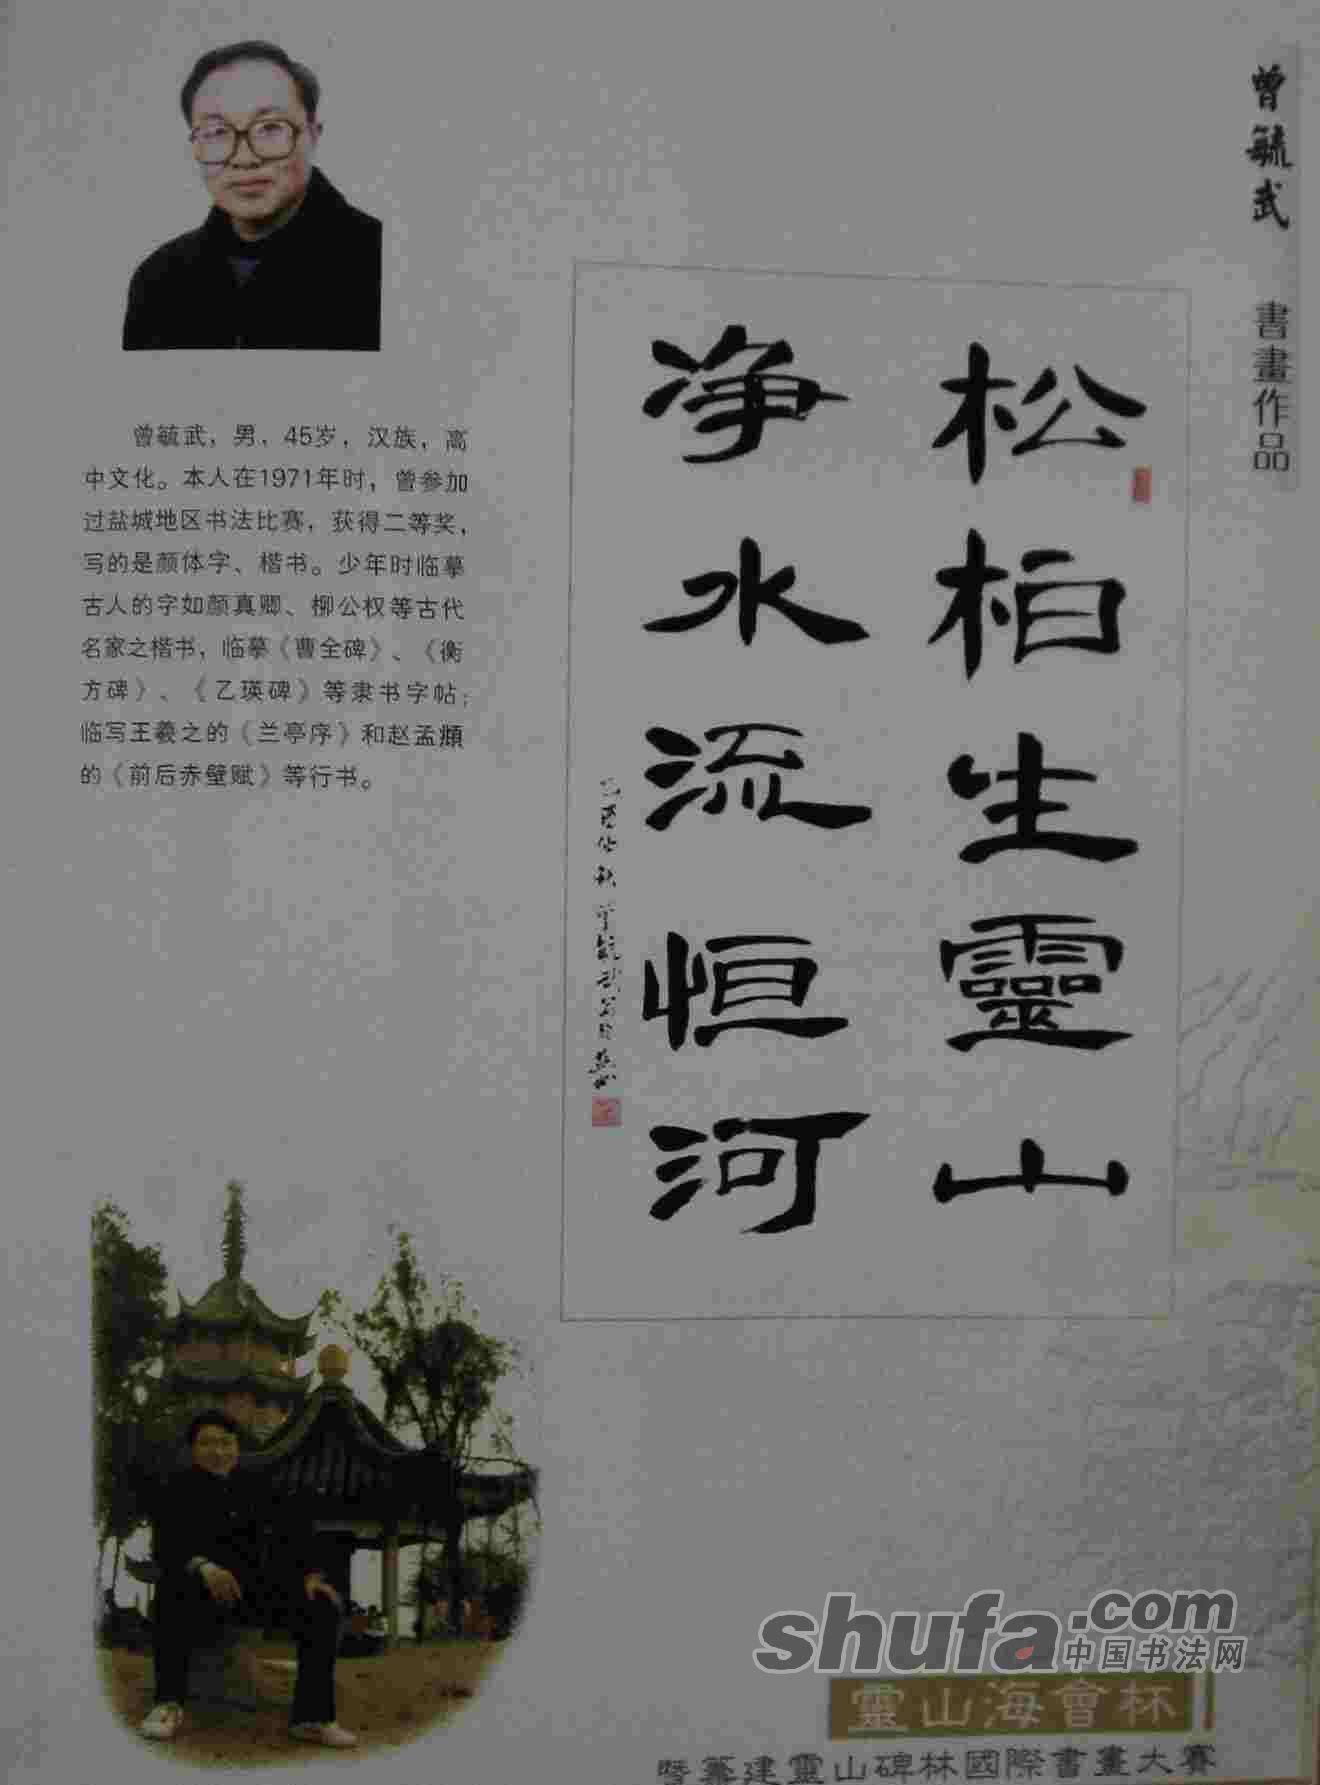 曾毓武 書畫作品
曾毓武，男，45岁，汉族，高
中文化。本人在1971年时，曾参加
过盐城地区书法比赛，获得二等奖，
写的是颜体字、楷书。少年时临摹
古人的字如颜真卿、柳公权等古代
名家之楷书，临摹《曹全碑》、《衡
方碑》、《乙瑛碑》等隶书字帖；
临写王羲之的《兰亭序》和赵孟頫
的《前后赤壁赋》等行书。
松柏生靈山
净水流恒河
shufa.com
中国书法网
靈山海會杯
暨篆建靈山碑林國際書畫大賽